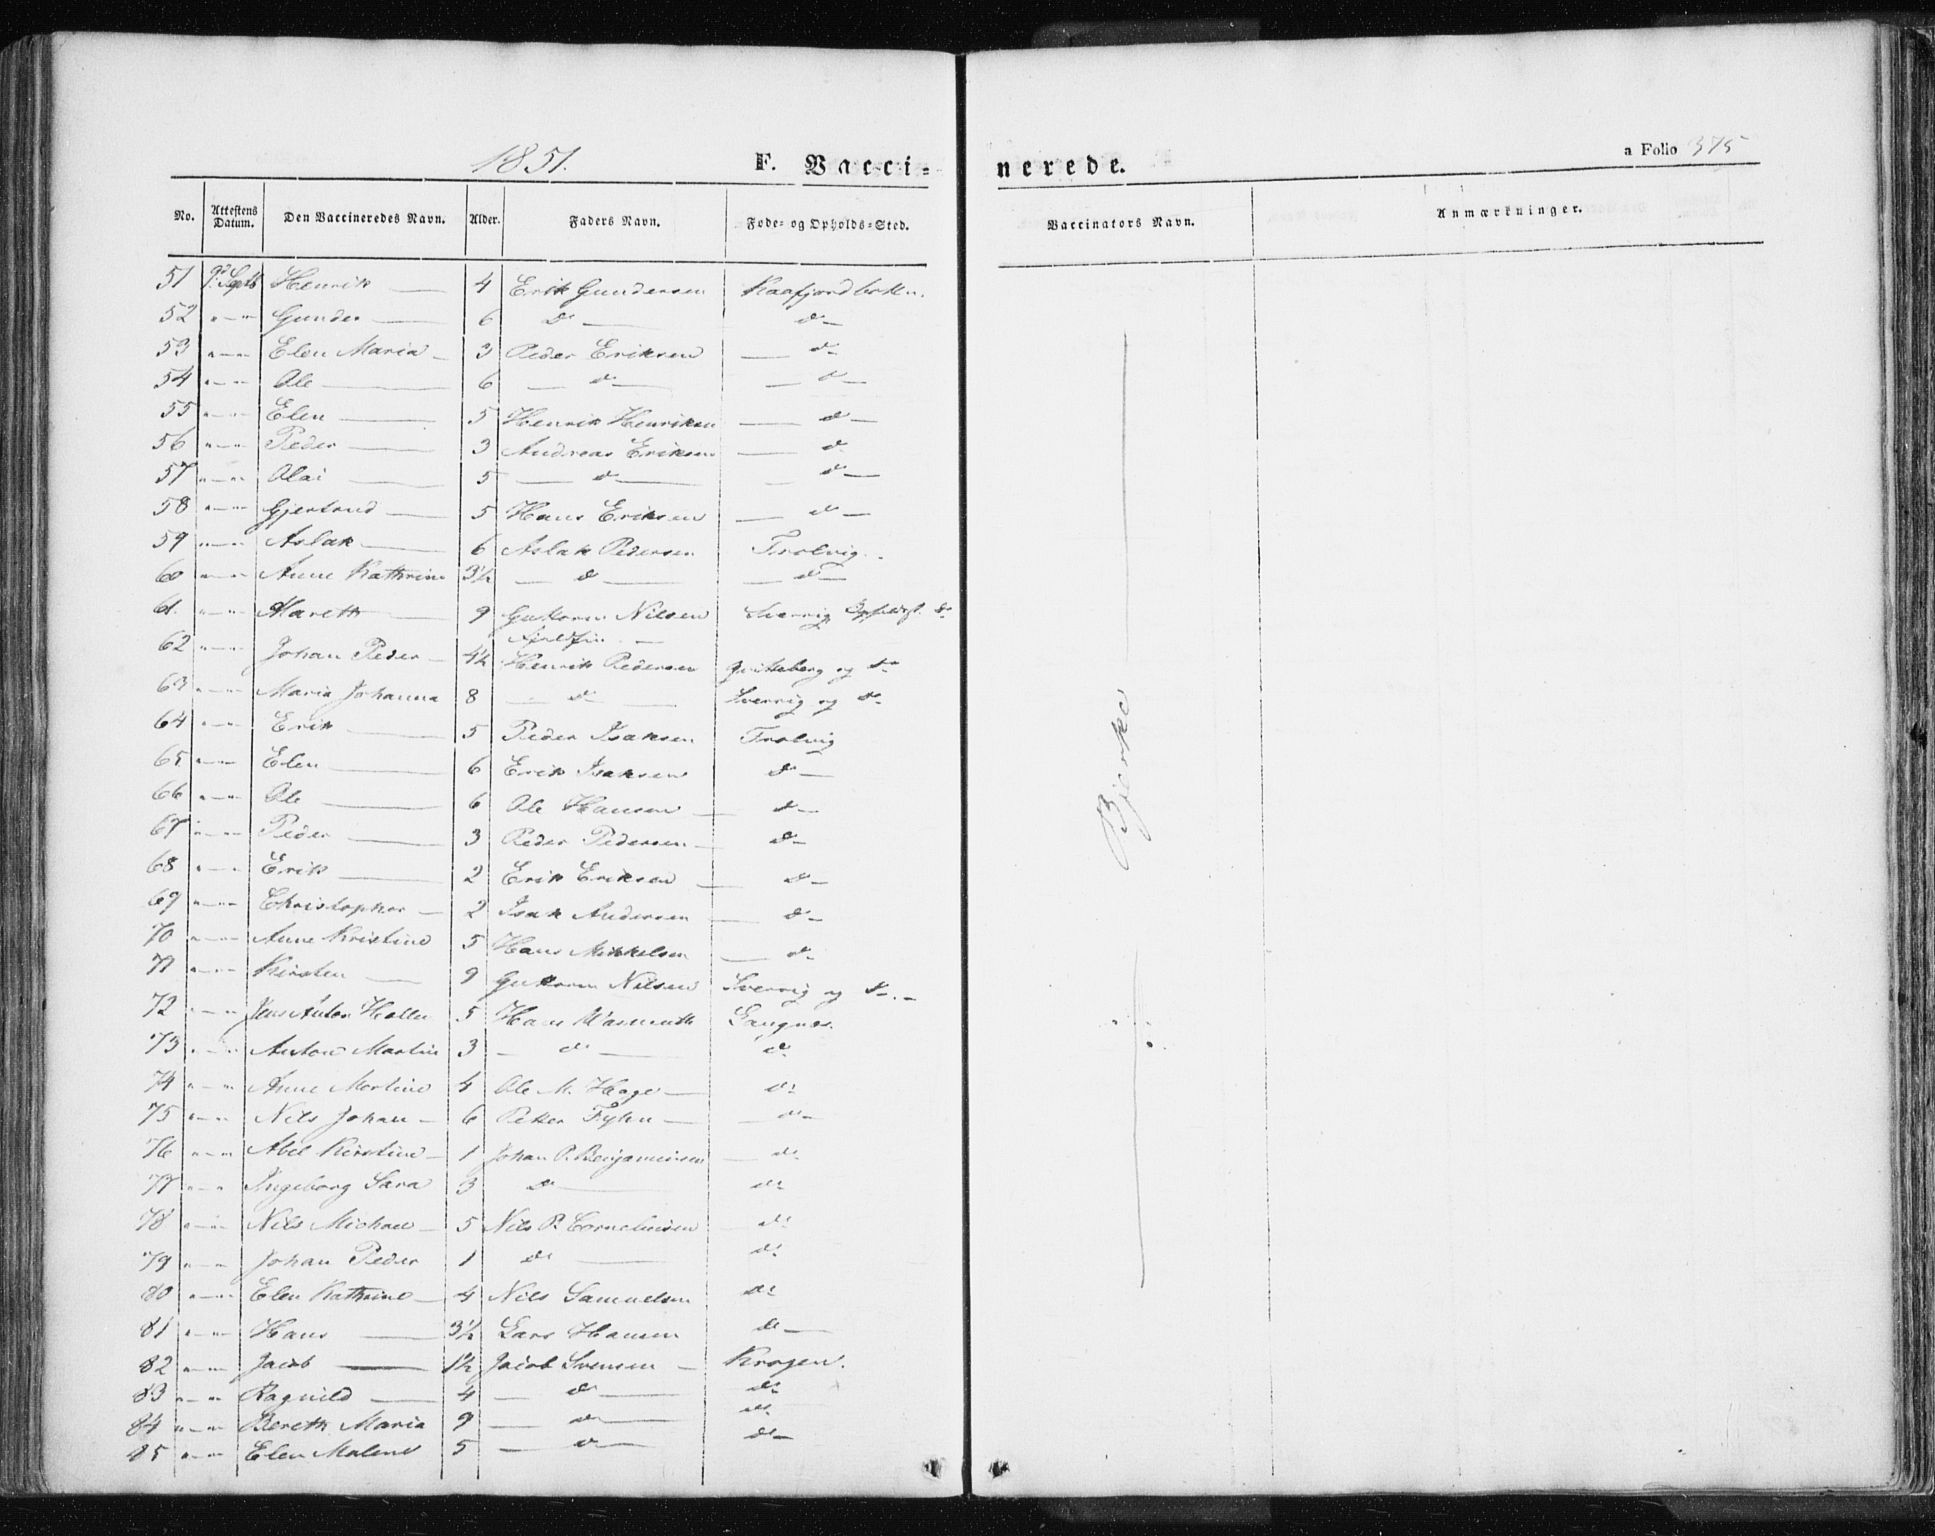 1851.
F. Vacci-
nerede.
a Folio 375
No. Attestens Datum. Den Vaccineredes Navn. Alder. Faders Navn. Føde- og Opholds-Sted. Vaccinators Navn. Anmærkninger.
51 9d Septb Henrik — 4 Erik Gundersen Kaafjordbotn.
52 "—" Gunder — 6 do — do —
53 "—" Elen Maria — 3 Peder Eriksen — do
54 "—" Ole — 6 — do — — do —
55 "—" Elen — 5 Henrik Henriksen — do —
56 "—" Peder — 3 Andreas Eriksen — do
57 "—" Olai — 5 — do — — do —
58 "—" Gjertrud — 5 Hans Eriksen — do —
59 "—" Aslak — 6 Aslak Pedersen Trolvig.
60 "—" Anne Kathrine 3½ — do — — do —
61. "—" Mareth — 9 Guttorm Nilsen Sverrig do
62 "—" Johan Peder — 4½ Henrik Pedersen og do
63 "—" Maria Johanna 8 — do — Sverrig og do
64 "—" Erik — 5 Peder Isaksen Trolvig
65 "—" Elen — 6 Erik Isaksen do —
66 "—" Ole — 6 Ole Hansen — do —
67 "—" Peder — 3 Peder Pedersen — do —
68 "—" Erik — 2 Erik Eriksen — do —
69 "—" Christopher — 2 Isak Andersen — do —
70 "—" Anne Kristine 5 Hans Mikkelsen — do
71 "—" Kirsten — 9 Guttorm Nilsen Sverrig og do. —
72 "—" Jens Anton 5 Hans Wasmuth Langnes.
73 "—" Anton Martin 3 — do — do
74 "—" Anne Martine 4 Ole M. Hage — do
75 "—" Nils Johan — 6 Peter Fyhn — — do —
76 "—" Abel Kirstine — 1 Johan P. Benjaminsen — do
77 "—" Ingeborg Sara 3 do — do
78 "—" Nils Michael — 5 Nils P. Corneliusen — do
79 "—" Johan Peder 1 do — do
80 "—" Elen Kathrine — 4 Nils Samuelsen do
81 "—" Hans — 3½ Lars Hansen do —
82 "—" Jacob — 1½ Jacob Svensen — Krogen.
83 "—" Ragnild — 4 — do — do
84 "—" Bereth Maria 9 — do — do
85 "—" Elen Malene 5 — do — do —
Bjerke